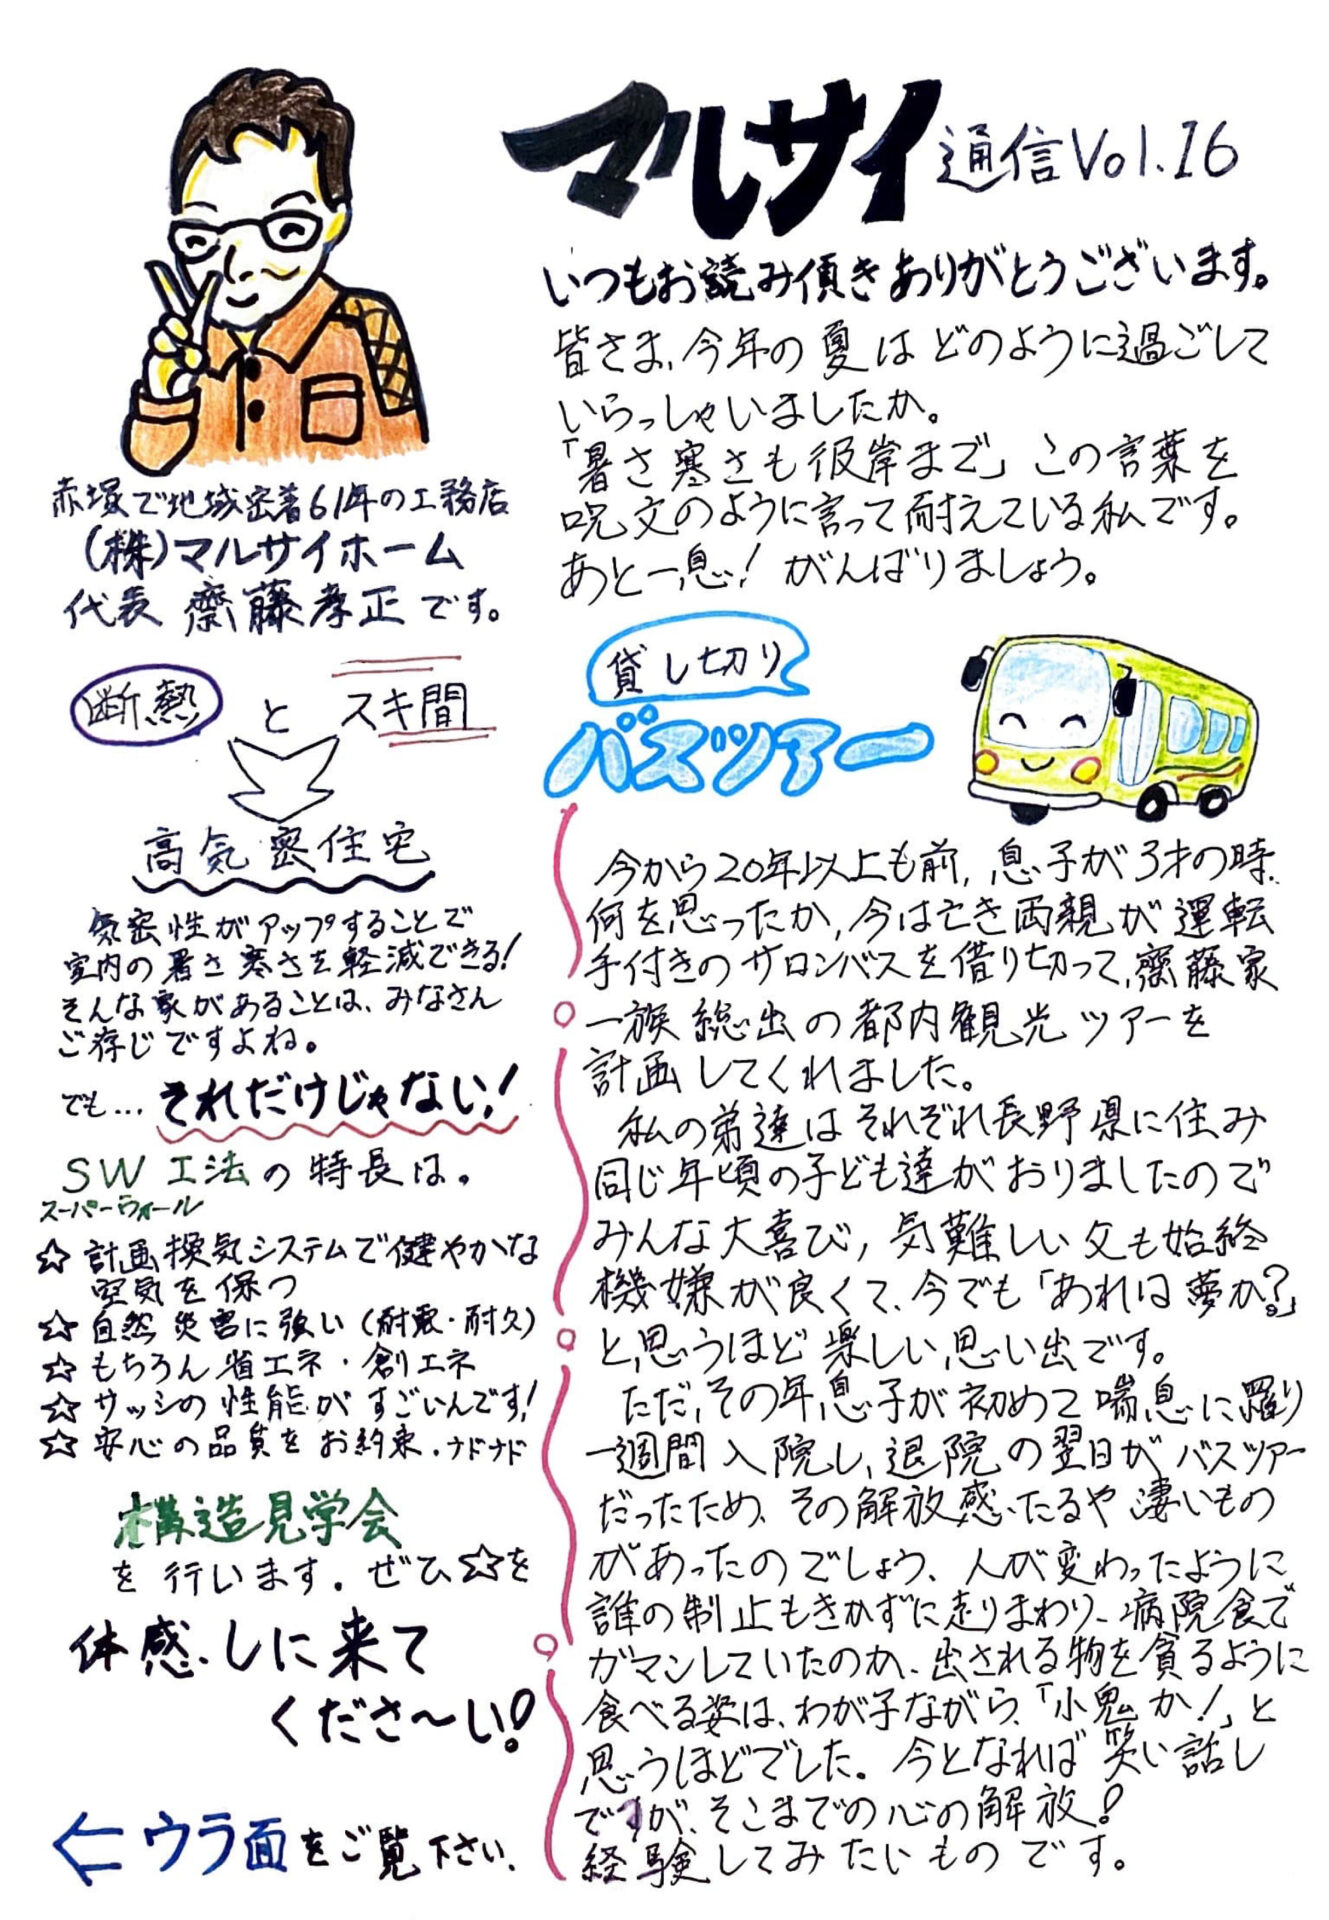 マルサイ通信Vol.16
いつもお読み頂きありがとうございます。
皆さま、今年の夏はどのように過ごして
いらっしゃいましたか。
「暑さ寒さも彼岸まで」この言葉を
呪文のように言って耐えている私です。
あと一息！がんばりましょう。
赤塚で地域密着61年の工務店
(株)マルサイホーム
代表 齋藤孝正です。
断熱とスキ間
高気密住宅
気密性がアップすることで
室内の暑さ寒さを軽減できる！
そんな家があることは、みなさん
ご存じですよね。
でも…それだけじゃない！
SW工法の特長は。
スーパーウォール
☆計画換気システムで健やかな
空気を保つ
☆自然災害に強い(耐震・耐久)
☆もちろん省エネ・創エネ
☆サッシの性能がすごいんです！
☆安心の品質をお約束。ナドナド
構造見学会
を行います。ぜひ☆を
体感しに来て
くださ〜い！
←ウラ面をご覧下さい。
貸し切り
バスツアー
今から20年以上も前、息子が3才の時、
何を思ったか、今は亡き両親が運転
手付きのサロンバスを借り切って、齋藤家
一族総出の都内観光ツアーを
計画してくれました。
私の弟達はそれぞれ長野県に住み
同じ年頃の子ども達がおりましたので
みんな大喜び、気難しい父も始終
機嫌が良くて、今でも「あれは夢か？」
と思うほど楽しい思い出です。
ただ、その年、息子が初めて喘息に羅り
一週間入院し、退院の翌日がバスツアー
だったため、その解放感たるや凄いもの
があったのでしょう、人が変わったように
誰の制止もきかずに走りまわり、病院食で
ガマンしていたのか、出される物を貪るように
食べる姿は、わが子ながら、「小鬼か！」と
思うほどでした。今となれば笑い話し
ですが、そこまでの心の解放！
経験してみたいものです。